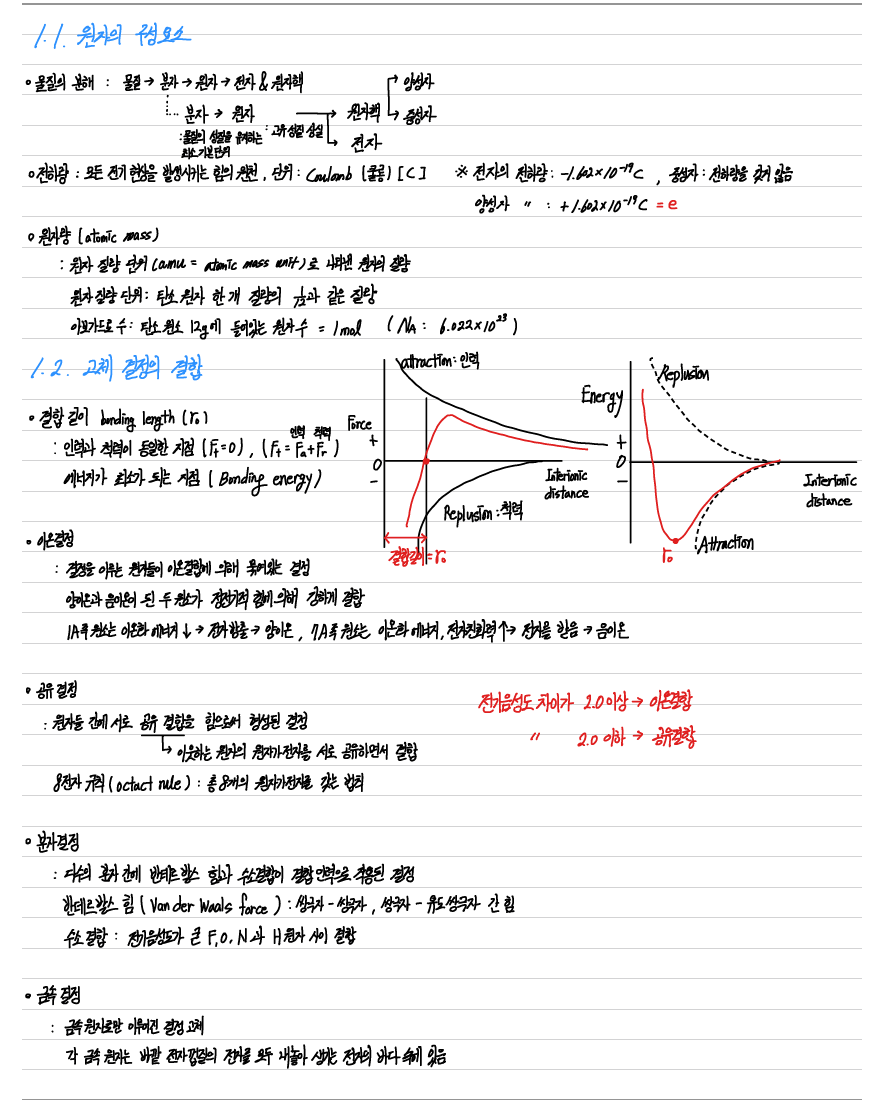 1.1. 원자의 구성요소
∘ 물질의 분해 : 물질 → 분자 → 원자 → 전자 & 원자핵
양성자
분자 → 원자 → 원자핵 → 중성자
: 물질의 성질을 유지하는 최소 기본단위 : 고유성질 상실 → 전자
∘ 전하량 : 모든 전기현상을 발생시키는 힘의 원천, 단위 : Coulomb (쿨롱) [C] ※ 전자의 전하량 : -1.602×10⁻¹⁹C , 중성자 : 전하량을 갖지 않음
양성자 〃 : +1.602×10⁻¹⁹C = e
∘ 원자량 (atomic mass)
: 원자 질량 단위 (amu = atomic mass unit)로 나타낸 원자의 질량
원자 질량 단위 : 탄소 원자 한 개 질량의 1/12과 같은 질량
아보가드로 수 : 탄소 원소 12g에 들어있는 원자 수 = 1mol (NA : 6.022×10²³)
1.2. 고체 결정의 결합
∘ 결합 길이 bonding length (r₀)
: 인력과 척력이 동일한 지점 (Ft=0) , (Ft = Fa + Fr)
인력 척력
에너지가 최소가 되는 지점 (Bonding energy)
attraction : 인력
Force
+
0
-
Interionic distance
Replusion : 척력
결합길이 = r₀
Replusion
Energy
+
0
-
Interionic distance
r₀
Attraction
∘ 이온결정
: 결정을 이루는 원자들이 이온결합에 의해 묶여있는 결정
양이온과 음이온이 된 두 원소가 정전기적 힘에 의해 강하게 결합
1A족 원소는 이온화 에너지 ↓ → 전자 방출 → 양이온 , 7A족 원소는 이온화 에너지, 전자친화력 ↑ → 전자를 얻음 → 음이온
∘ 공유 결정
: 원자들 간에 서로 공유 결합을 함으로써 형성된 결정
→ 이웃하는 원자의 원자가전자를 서로 공유하면서 결합
8전자 규칙 (octact rule) : 총 8개의 원자가전자를 갖는 법칙
전기음성도 차이가 2.0 이상 → 이온결합
〃 2.0 이하 → 공유결합
∘ 분자결정
: 다수의 분자 간에 반데르발스 힘과 수소결합이 결합 인력으로 작용된 결정
반데르발스 힘 (Van der Waals force) : 쌍극자 - 쌍극자 , 쌍극자 - 유도쌍극자 간 힘
수소 결합 : 전기음성도가 큰 F, O, N과 H 원자 사이 결합
∘ 금속 결정
: 금속 원자로만 이루어진 결정 고체
각 금속 원자는 바깥 전자껍질의 전자를 모두 내놓아 생기는 전자의 바다 속에 있음